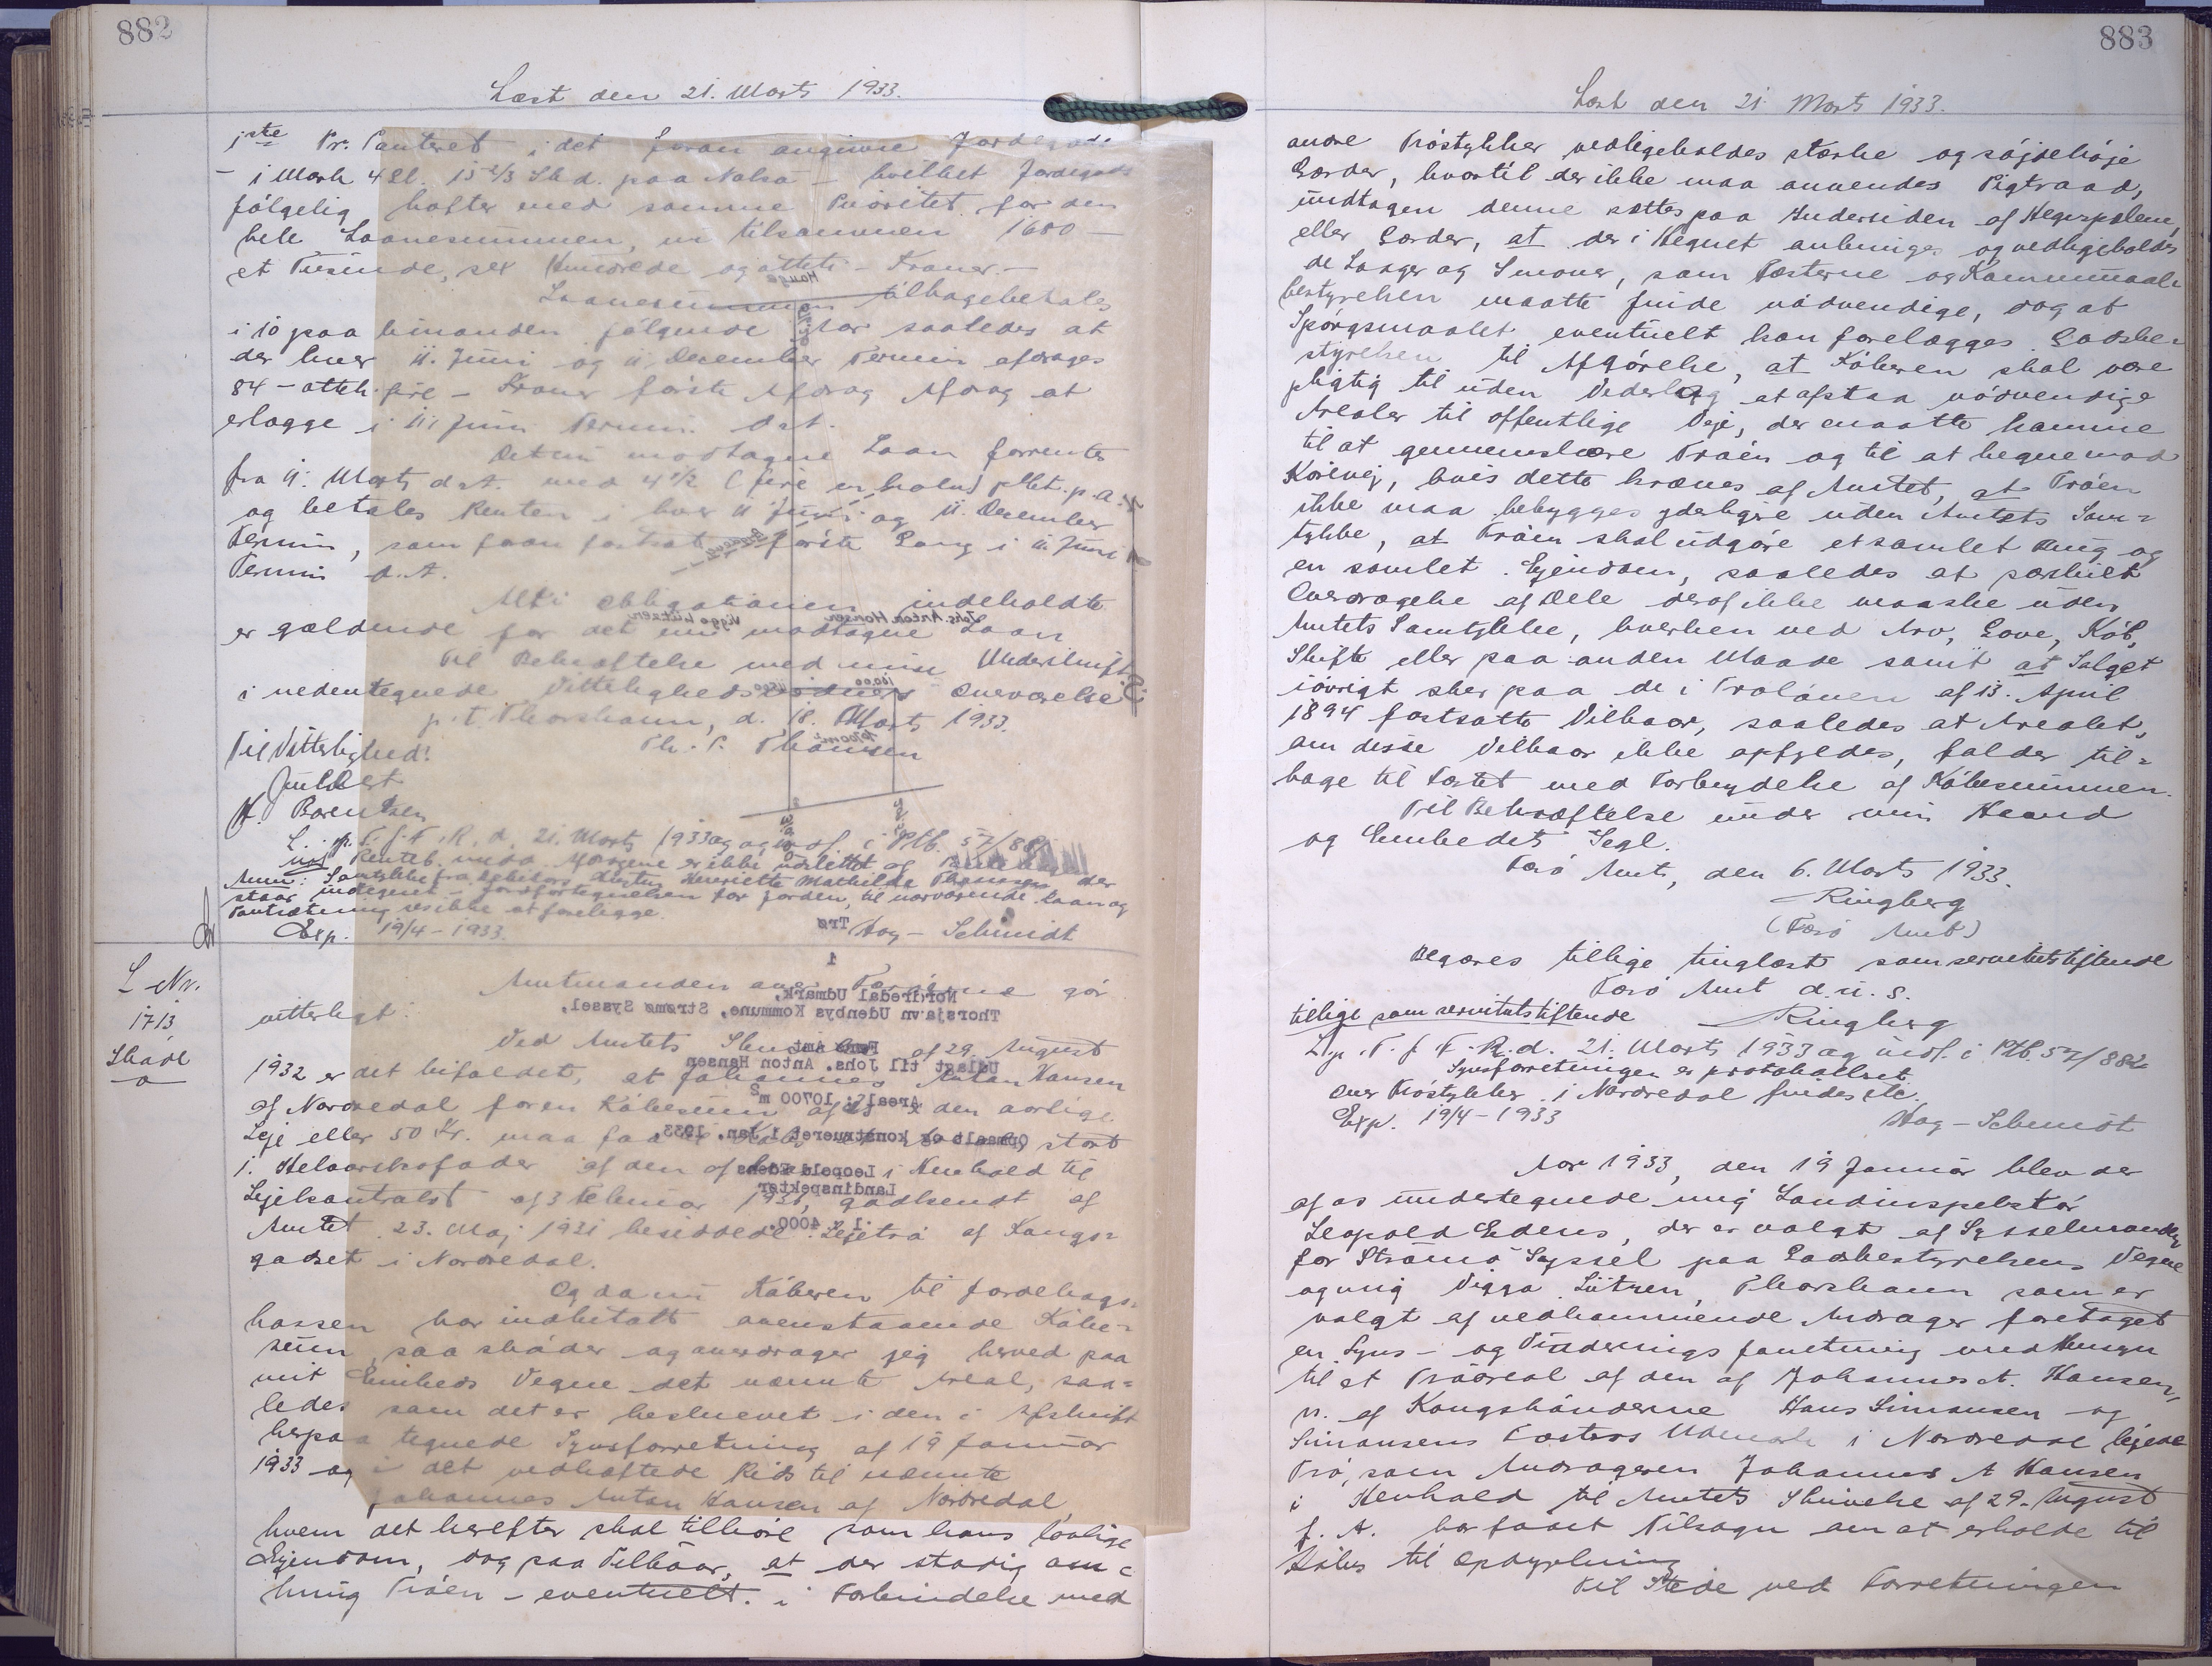 882
Læst den 21. Marts 1933.
1ste Pr. Panteret i det foran angivne Jordegods
- i Mark 4 Gl. 15 2/3 Sk d. paa Nolsø - hvilket Jordegods
følgelig hæfter med samme Prioritet for den
hele Laanesummen, nu tilsammen 1680 -
et Tusinde, sex Hundrede og otteti - Kroner. -
Laanesummen tilbagebetales
i 10 paa hinanden følgende Aar saaledes at
der hver 11. Juni og 11. December Termin afdrages
84 - otteti fire - Kroner første Afdrag Afdrag at
erlægge i 11. Juni Termin d.A.
Det nu modtagne Laan forrentes
fra 11. Marts d.A. med 4 1/2 (fire en halv) pCt. p.a.
og betales Renten i hver 11 Juni og 11. December
Termin, som foran fastsat, første Gang i 11. Juni
Termin d.A.
Alt i Obligationen indeholdte
er gældende for det nu modtagne Laan
Til Bekræftelse med min Underskrift
i nedentegnede Vitterlighedsvidners Overværelse
p.t. Thorshavn, d. 18. Marts 1933.
Til Vitterlighed: Th. P. Thomsen
H. Barentsen
L. p. T. f. F. R. d. 21. Marts 1933 og indf. i Ptb. 57/881
Anm: Samtykke fra Debitors Hustru Henriette Mathilde Thomsen der
staar indtegnet - Jordfortegnelsen for Jorden, til nærværende Laan og
Pantsætning ses ikke at foreligge.
Exp. 19/4 - 1933. Hag - Schmidt
L Nr.
1713
Skøde
Amtmanden over Færøerne gør
vitterligt:
Ved Amtets Skrivelse af 29. August
1932 er det bifaldet, at Johannes Anton Hansen
af Nordredal for en Købesum af 25 x den aarlige
Leje eller 50 Kr. maa faa
i Henhold til
Lejekontrakt af 3 Februar 1931, godkendt af
Amtet 23. Maj 1931 besiddede Lejetrø af Kongs=
godset i Nordredal.
Og da nu Køberen til Jordebogs=
kassen har indbetalt ovenstaaende Købe=
sum, saa skøder og overdrager jeg herved paa
mit Embeds Vegne det nævnte Areal, saa=
ledes som det er beskrevet i den i Afskrift
herpaa tegnede Synsforretning af 19 Januar
1933 og i det vedhæftede Rids til nævnte
Johannes Anton Hansen af Nordredal
hvem det herefter skal tilhøre som hans lovlige
Ejendom, dog paa Vilkaar, at der stadig om=
kring Trøen - eventuelt i Forbindelse med
Hauge
Johs. Anton Hansen
Viggo Lützen
100,00
Trø
1
Nordredal Udmark,
Thorshavn Udenbys Kommune, Strømø Syssel,
Færø Amt
Udlagt til Johs. Anton Hansen
Areal: 10700 m²
Opmaalt og konstrueret i Jan. 1933.
Leopold Edens
Landinspektør
1 : 4000.
883
Læst den 21. Marts 1933.
andre Trøstykker vedligeholdes stærke og søjdehøje
Gærder, hvortil der ikke maa anvendes Pigtraad,
undtagen denne sættes paa Indersiden af Hegnspælene
eller Gærder, at der i Hegnet anbringes og vedligeholdes
de Laager og Smover, som Fæsterne og Kommunal=
bestyrelsen maatte finde nødvendige, dog at
Spørgsmaalet eventuelt kan forelægges Godsbe=
styrelsen til Afgørelse, at Køberen skal være
pligtig til uden Vederlag at afstaa nødvendige
Arealer til offentlige Veje, der maatte komme
til at gennemskære Trøen og til at hegne mod
Kørevej, hvis dette kræves af Amtet, at Trøen
ikke maa bebygges yderligere uden Amtets Sam=
tykke, at Trøen skal udgøre et samlet Brug og
en samlet Ejendom, saaledes at særskilt
Overdragelse af Dele deraf ikke maa ske uden
Amtets Samtykke, hverken ved Arv, Gave, Køb,
Skifte eller paa anden Maade samt at Salget
iøvrigt sker paa de i Troloven af 13. April
1894 fastsatte Vilkaar, saaledes at Arealet,
om disse Vilkaar ikke opfyldes, falder til=
bage til Fæstet med Fortabelse af Købesummen.
Til Bekræftelse under min Haand
og Embedets Segl.
Færø Amt, den 6. Marts 1933.
Ringberg
(Færø Amt)
Begæres tillige tinglæst som servitutstiftende
Færø Amt d.u.s.
tillige som servitutstiftende Ringberg
L. p. T. f. F. R. d. 21. Marts 1933 og indf. i Ptb. 57/882
Synsforretningen er protokolleret
over Trøstykker i Nordredal findes ikke.
Exp. 19/4 - 1933 Hag - Schmidt
Aar 1933, den 19 Januar blev der
af os undertegnede mig Landinspektør
Leopold Edens, der er valgt af Sysselmanden
for Strømø Syssel paa Godsbestyrelsens Vegne
og mig Viggo Lützen, Thorshavn som er
valgt af vedkommende Andrager foretaget
en Syns- og Vurderingsforretning med Hensyn
til et Trøareal af den af Johannes A. Hansen,
N. af Kongsbønderne Hans Simonsen og
Simonsens Fæsters Udmark i Nordredal lejede
Trø, som Andrageren Johannes A Hansen
i Henhold til Amtets Skrivelse af 29. August
f. A. har faaet Tilsagn om at erholde til
Købs til Opdyrkning
Til Stede ved Forretningen